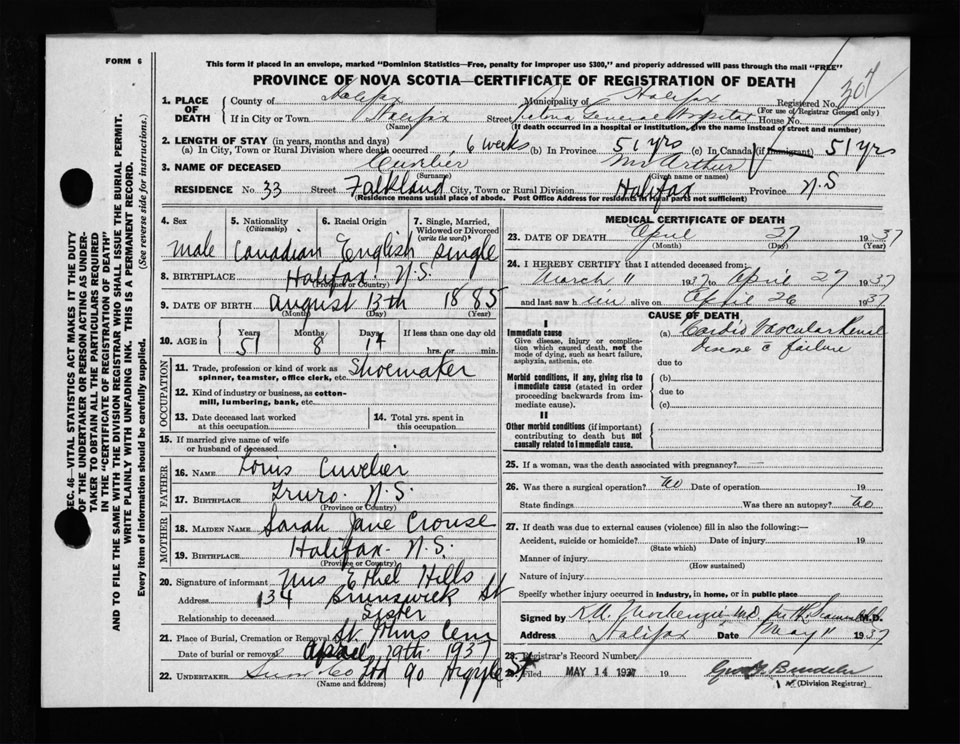 FORM 6
This form if placed in an envelope, marked "Dominion Statistics—Free, penalty for improper use $300," and properly addressed will pass through the mail "FREE"
PROVINCE OF NOVA SCOTIA—CERTIFICATE OF REGISTRATION OF DEATH
1. PLACE OF DEATH County of Halifax Municipality of Halifax Registered No. 307
(For use of Registrar General only)
If in City or Town Halifax Street Victoria General Hospital House No.
(Name) (If death occurred in a hospital or institution, give the name instead of street and number)
2. LENGTH OF STAY (in years, months and days)
(a) In City, Town or Rural Division where death occurred 6 weeks (b) In Province 51 yrs (c) In Canada (if immigrant) 51 yrs
3. NAME OF DECEASED Cuvelier Arthur
(Surname) (Given name or names)
RESIDENCE No. 33 Street Falkland City, Town or Rural Division Halifax Province N.S
(Residence means usual place of abode. Post Office Address for residents in rural parts not sufficient)
4. Sex 5. Nationality (Citizenship) 6. Racial Origin 7. Single, Married, Widowed or Divorced (write the word)
Male Canadian English Single
8. BIRTHPLACE Halifax. N.S.
(Province or Country)
9. DATE OF BIRTH August 13th 1885
(Month) (Day) (Year)
10. AGE in Years Months Days If less than one day old
51 8 14 hrs. or min.
OCCUPATION
11. Trade, profession or kind of work as spinner, teamster, office clerk, etc. Shoemaker
12. Kind of industry or business, as cotton-mill, lumbering, bank, etc.
13. Date deceased last worked at this occupation
14. Total yrs. spent in this occupation
15. If married give name of wife or husband of deceased
FATHER
16. NAME Louis Cuvelier
17. BIRTHPLACE Truro. N.S.
(Province or Country)
MOTHER
18. MAIDEN NAME Sarah Jane Crouse
19. BIRTHPLACE Halifax. N.S.
(Province or Country)
20. Signature of informant Mrs Ethel Hills
Address 134 Brunswick St
Relationship to deceased Sister
21. Place of Burial, Cremation or Removal St. Johns Cem
Date of burial or removal April 29th 1937
22. UNDERTAKER Snow Co Ltd 90 Argyle St
(Name and address)
MEDICAL CERTIFICATE OF DEATH
23. DATE OF DEATH April 27 1937
(Month) (Day) (Year)
24. I HEREBY CERTIFY that I attended deceased from:
March 11 1937 to April 27 1937
and last saw him alive on April 26 1937
CAUSE OF DEATH
I
Immediate cause
Give disease, injury or complication which caused death, not the mode of dying, such as heart failure, asphyxia, asthenia, etc.
(a) Cardio Vascular Renal
disease c failure
due to
Morbid conditions, if any, giving rise to immediate cause (stated in order proceeding backwards from immediate cause).
(b)
due to
(c)
II
Other morbid conditions (if important) contributing to death but not causally related to immediate cause.
25. If a woman, was the death associated with pregnancy? —
26. Was there a surgical operation? No Date of operation 19
State findings Was there an autopsy? No
27. If death was due to external causes (violence) fill in also the following:—
Accident, suicide or homicide? Date of injury 19
(State which)
Manner of injury
(How sustained)
Nature of injury
Specify whether injury occurred in industry, in home, or in public place
Signed by MacKenzie MD M.D.
Address Halifax Date May 11 1937
28. Registrar's Record Number
29. Filed MAY 14 1937 19
(Division Registrar)
SEC. 46—VITAL STATISTICS ACT MAKES IT THE DUTY
OF THE UNDERTAKER OR PERSON ACTING AS UNDER-
TAKER TO OBTAIN ALL THE PARTICULARS REQUIRED
IN THE "CERTIFICATE OF REGISTRATION OF DEATH"
AND TO FILE THE SAME WITH THE DIVISION REGISTRAR WHO SHALL ISSUE THE BURIAL PERMIT.
WRITE PLAINLY WITH UNFADING INK. THIS IS A PERMANENT RECORD.
Every item of information should be carefully supplied. (See reverse side for instructions.)